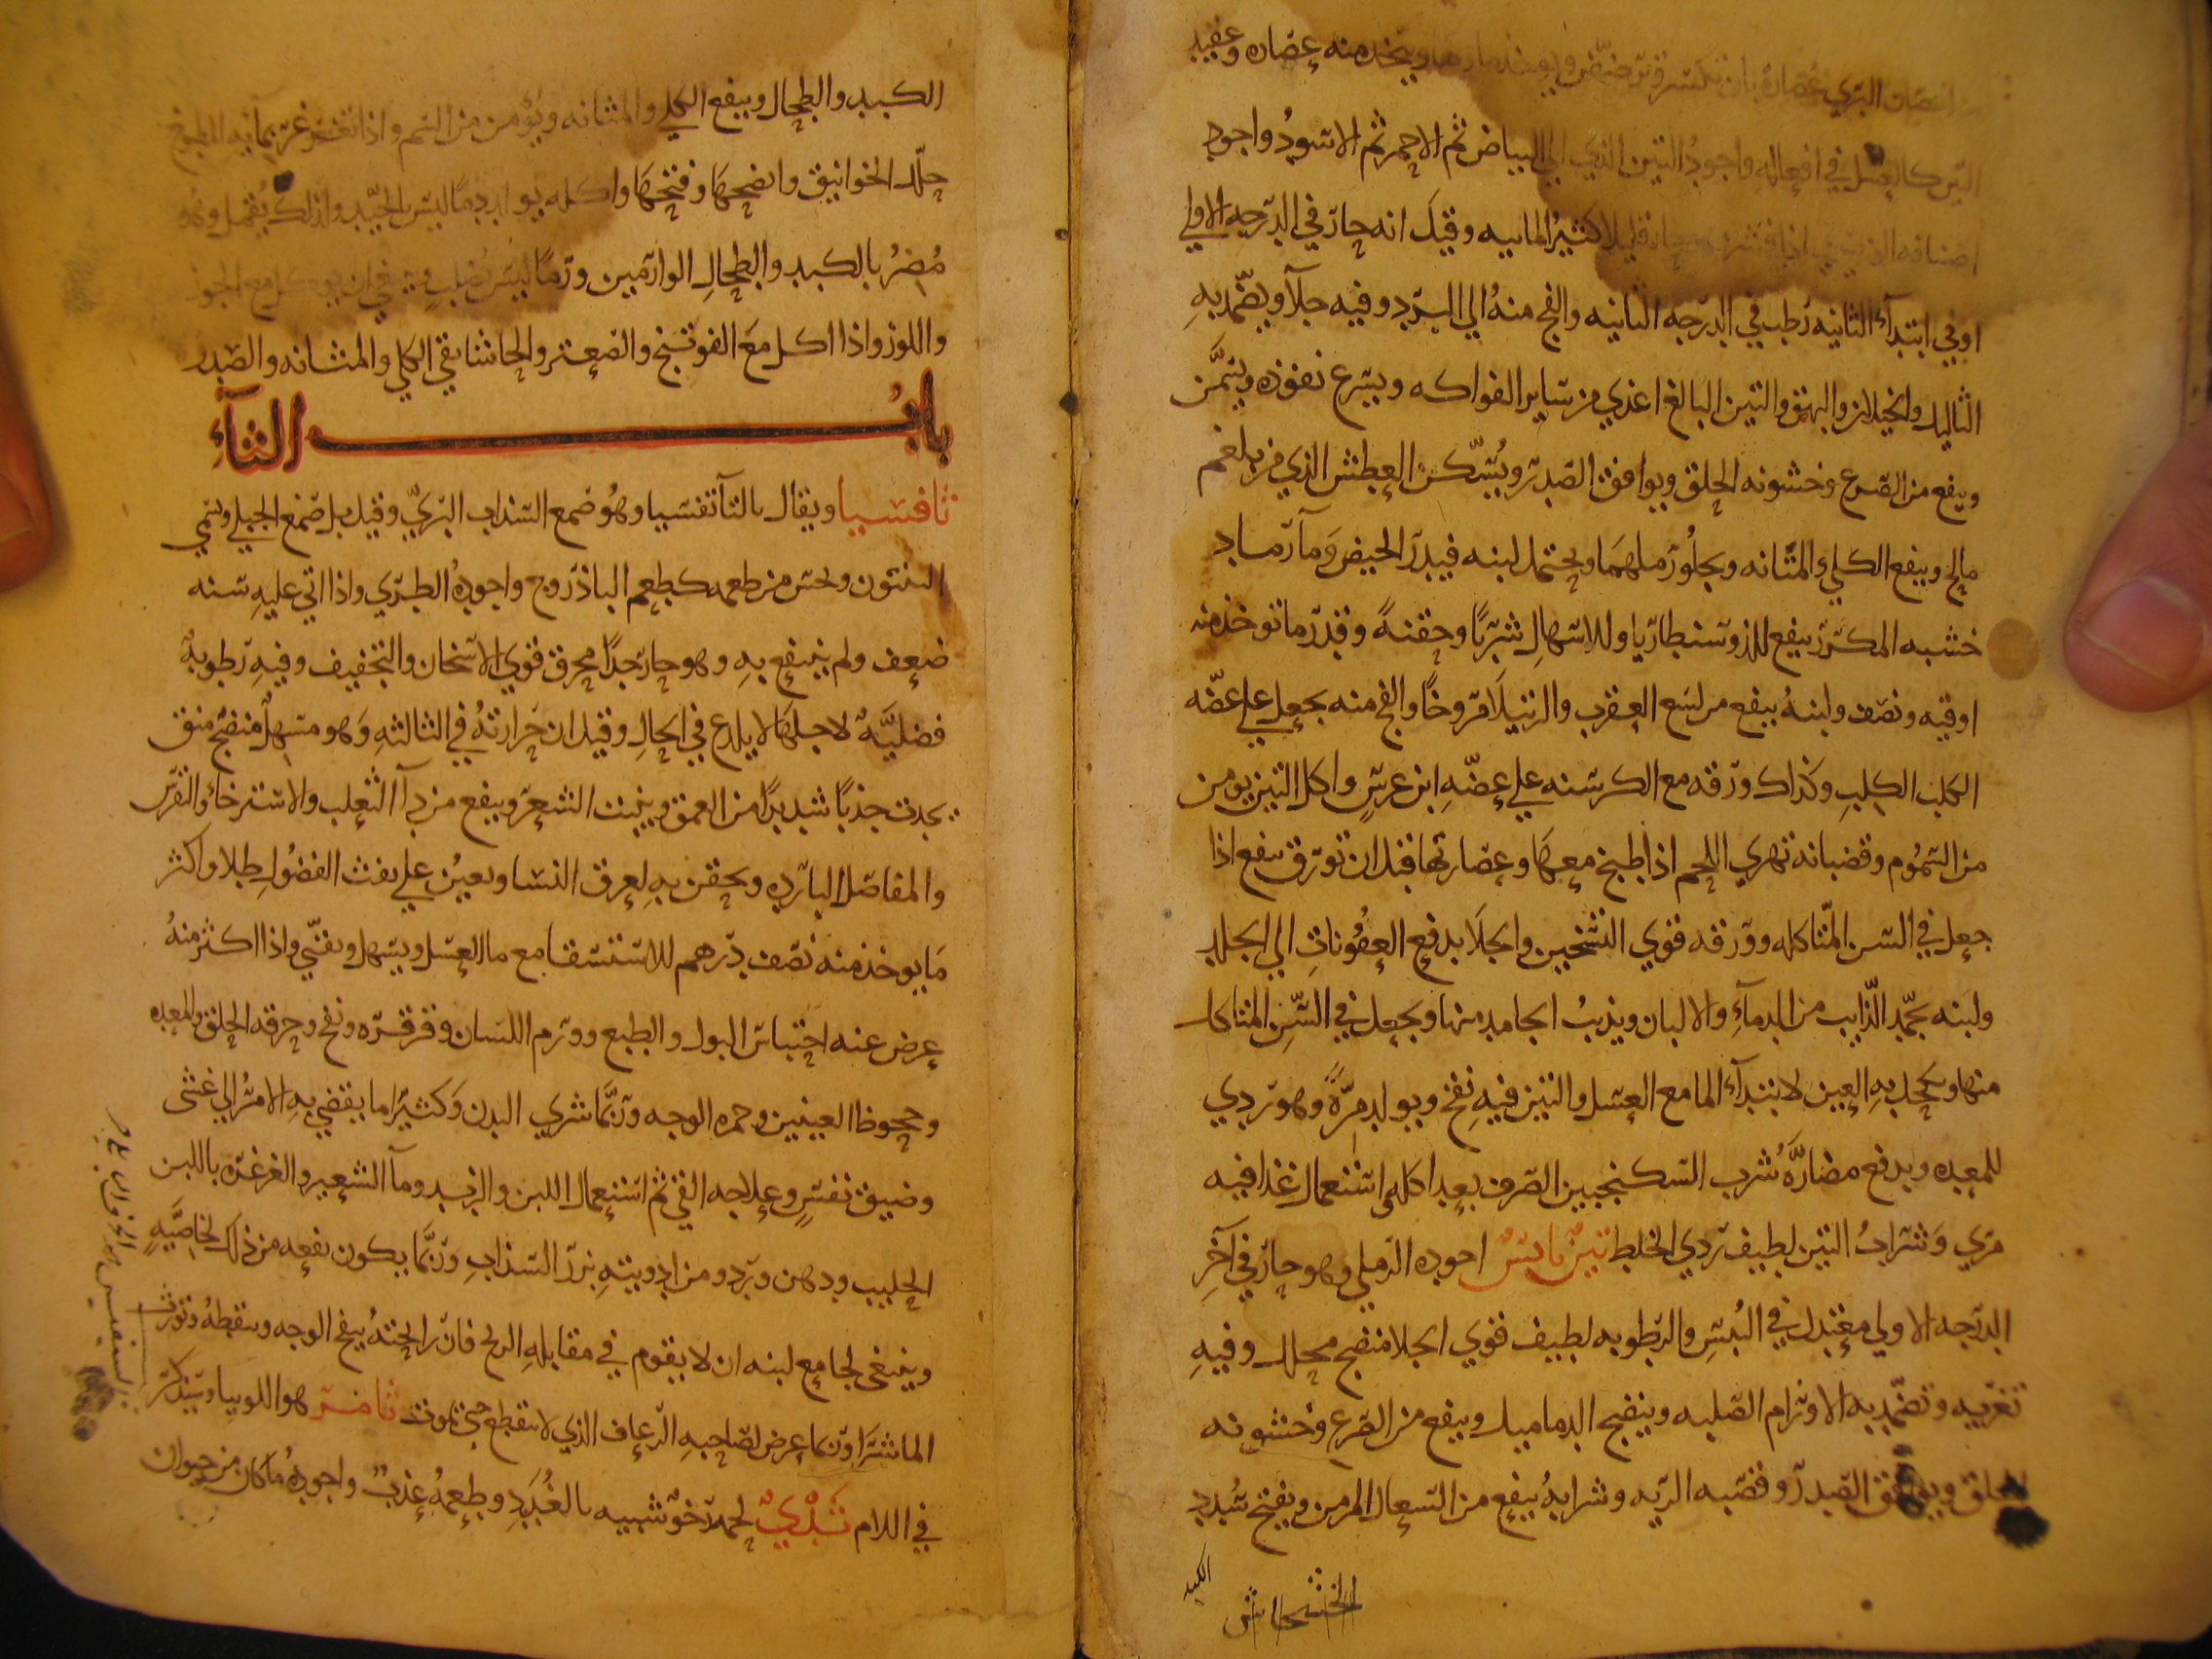 اغصان البري عصارة ان تكسر ثم ترضض ويوخذ ماوها ويتخذ منه عصاره وعقيد
التين كالعسل في افعاله واجود التين الذي الي البياض ثم الاحمر ثم الاسود واجود
اصنافه اذا قشر قليلا كثير الماييه وقيل انه حار في الدرجه الاولي
اوفي ابتدآء الثانيه رطب في الدرجه الثانيه والفج منه الي البرد وفيه جلآ ويضمد به
الثاليل والخيلان والبهق والتين البالغ اغذي من ساير الفواكه ويسرع نفوذه ويسمن
وينفع من الصرع وخشونه الحلق ويوافق الصدر ويسكن العطش الذي من بلغم
مالح وينفع الكلي والمثانه ويجلو رملهما ويحتمل لبنه فيدر الحيض ومآ رماد
خشبه المكرر ينفع للذوسنطاريا وللاسهال شربا وحقنة وقدر ما توخذ منه
اوقيه ونصف ولبنه ينفع من لسع العقرب والرتيلا مروخا والفج منه يجعل علي عضه
الكلب الكلب وكذلك ورقه مع الكرسنه علي عضه ابن عرس واكل التين يومن
من السموم وقضبانه تهري اللحم اذا طبخ معها وعصارتها قبل ان تورق ينفع اذا
جعل في السن المتاكله وورقه قوي التسخين والجلا يدفع العفونات الي الجلد
ولبنه يجمد الذايب من الدمآء والالبان ويذيب الجامد منها ويجعل في السن المتاكل
منها ويكحل به العين لابتدآء الما مع العسل والتين فيه نفخ ويولد مرة وهو ردي
للمعده ويدفع مضاره شرب السكنجبين الصرف بعد اكله استعمال غذا فيه
مري وشراب التين لطيف ردي الخلط تين يابس اجوده الرملي وهو حار في آخر
الدرجه الاولي معتدل في اليبس والرطوبه لطيف قوي الجلا منضج محلل وفيه
تغريه وتضمد به الاورام الصلبه وينضج الدماميل وينفع من الصرع وخشونه
الحلق ويوافق الصدر وقصبه الريه وشرابه ينفع من السعال المزمن ويفتح سدد
الكبد
الخشخاش
الكبد والطحال وينفع الكلي والمثانه ويؤمن من السم واذا تغرغر بمايه المطبوخ
حلل الخوانيق وانضجها وفتحها واكله يولد دما ليس بالجيد ولذلك يقمل وهو
مضر بالكبد والطحال الوارمين ورما ليس بصلب وينبغي ان يوكل مع الجوز
واللوز واذا اكل مع الفوتنج والصعتر والحاشا ينقي الكلي والمثانه والصدر
باب الثآء
ثافسيا ويقال بالتآ تفسيا وهو صمغ السذاب البري وقيل بل صمغ الجبلي ويسمي
الينتون ويحس من طعمه كطعم الباذروج واجوده الطري واذا اتي عليه سنه
ضعف ولم ينتفع به وهو حار جدا محرق قوي الاسخان والتجفيف وفيه رطوبة
فضلية لاجلها لا يلدع في الحال وقيل ان حرارته في الثالثه وهو مسهل منضج منق
يجذب جذبا شديدا من العمق وينبت الشعر وينفع من دآ الثعلب والاسترخا والنقرس
والمفاصل البارده ويحقن به لعرق النسا ويعين علي نفث الفضول طلا واكثر
ما يوخذ منه نصف درهم للاستسقا مع ما العسل ويسهل ويقي واذا اكثر منه
عرض عنه احتباس البول والطبع وورم اللسان وقرقره ونفخ وحرقه الحلق والمعده
وجحوظ العينين وحمره الوجه وربما شري البدن وكثيرا ما يفضي به الامر الي غشي
وضيق نفس وعلاجه القي ثم استعمال اللبن والزبد ومآ الشعير والغرغره باللبن
الحليب ودهن ورد ومن ادويته بزر السذاب وربما يكون نفعه من ذلك لخاصيه
وينبغي لجامع لبنه ان لا يقوم في مقابله الريح فان رايحته ينفخ الوجه وينقطه ويورث
الماشرا وربما عرض لصاحبه الرعاف الذي لا ينقطع حتي يموت ثامر هو اللوبيا وسيذكر
في اللام ثدي لحمه رخو شبيه بالغدد وطعمه عذب واجوده ما كان من حيوان